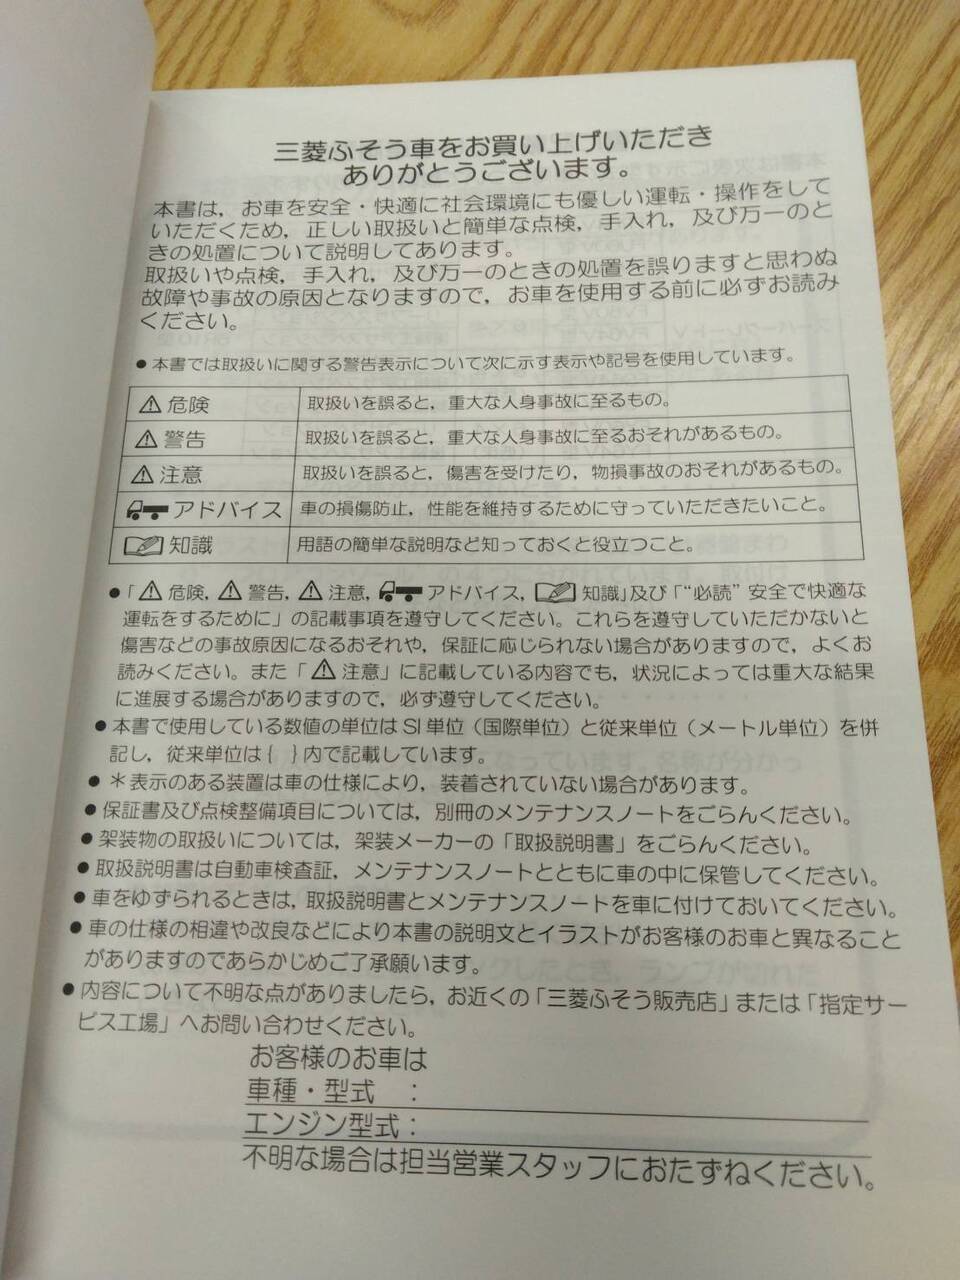 三菱ふそう車をお買い上げいただき
ありがとうございます。
本書は，お車を安全・快適に社会環境にも優しい運転・操作をして
いただくため，正しい取扱いと簡単な点検，手入れ，及び万一のと
きの処置について説明してあります。
取扱いや点検，手入れ，及び万一のときの処置を誤りますと思わぬ
故障や事故の原因となりますので，お車を使用する前に必ずお読み
ください。
● 本書では取扱いに関する警告表示について次に示す表示や記号を使用しています。
⚠ 危険 取扱いを誤ると，重大な人身事故に至るもの。
⚠ 警告 取扱いを誤ると，重大な人身事故に至るおそれがあるもの。
⚠ 注意 取扱いを誤ると，傷害を受けたり，物損事故のおそれがあるもの。
アドバイス 車の損傷防止，性能を維持するために守っていただきたいこと。
知識 用語の簡単な説明など知っておくと役立つこと。
●「⚠ 危険，⚠ 警告，⚠ 注意，アドバイス，知識」及び「“必読” 安全で快適な
運転をするために」の記載事項を遵守してください。これらを遵守していただかないと
傷害などの事故原因になるおそれや，保証に応じられない場合がありますので，よくお
読みください。また「⚠ 注意」に記載している内容でも，状況によっては重大な結果
に進展する場合がありますので，必ず遵守してください。
● 本書で使用している数値の単位は SI 単位（国際単位）と従来単位（メートル単位）を併
記し，従来単位は{ }内で記載しています。
● ＊表示のある装置は車の仕様により，装着されていない場合があります。
● 保証書及び点検整備項目については，別冊のメンテナンスノートをごらんください。
● 架装物の取扱いについては，架装メーカーの「取扱説明書」をごらんください。
● 取扱説明書は自動車検査証，メンテナンスノートとともに車の中に保管してください。
● 車をゆずられるときは，取扱説明書とメンテナンスノートを車に付けておいてください。
● 車の仕様の相違や改良などにより本書の説明文とイラストがお客様のお車と異なること
がありますのであらかじめご了承願います。
● 内容について不明な点がありましたら，お近くの「三菱ふそう販売店」または「指定サー
ビス工場」へお問い合わせください。
お客様のお車は
車種・型式 ：
エンジン型式：
不明な場合は担当営業スタッフにおたずねください。